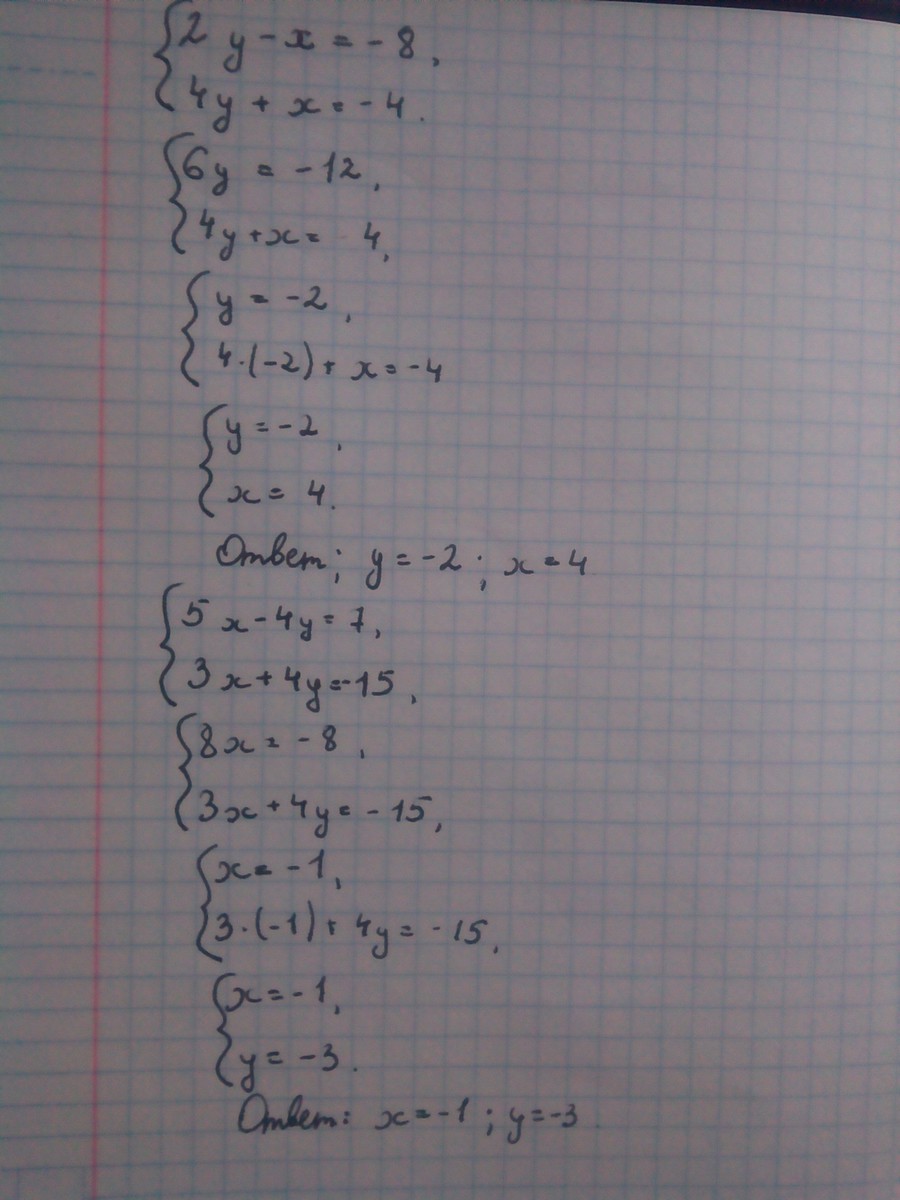 2y - x = -8,
4y + x = -4.
6y = -12,
4y + x = 4,
y = -2,
4·(-2) + x = -4
y = -2,
x = 4.
Ответ; y = -2; x = 4
5x - 4y = 7,
3x + 4y = -15,
8x = -8,
3x + 4y = -15,
x = -1,
3·(-1) + 4y = -15,
x = -1,
y = -3.
Ответ: x = -1; y = -3